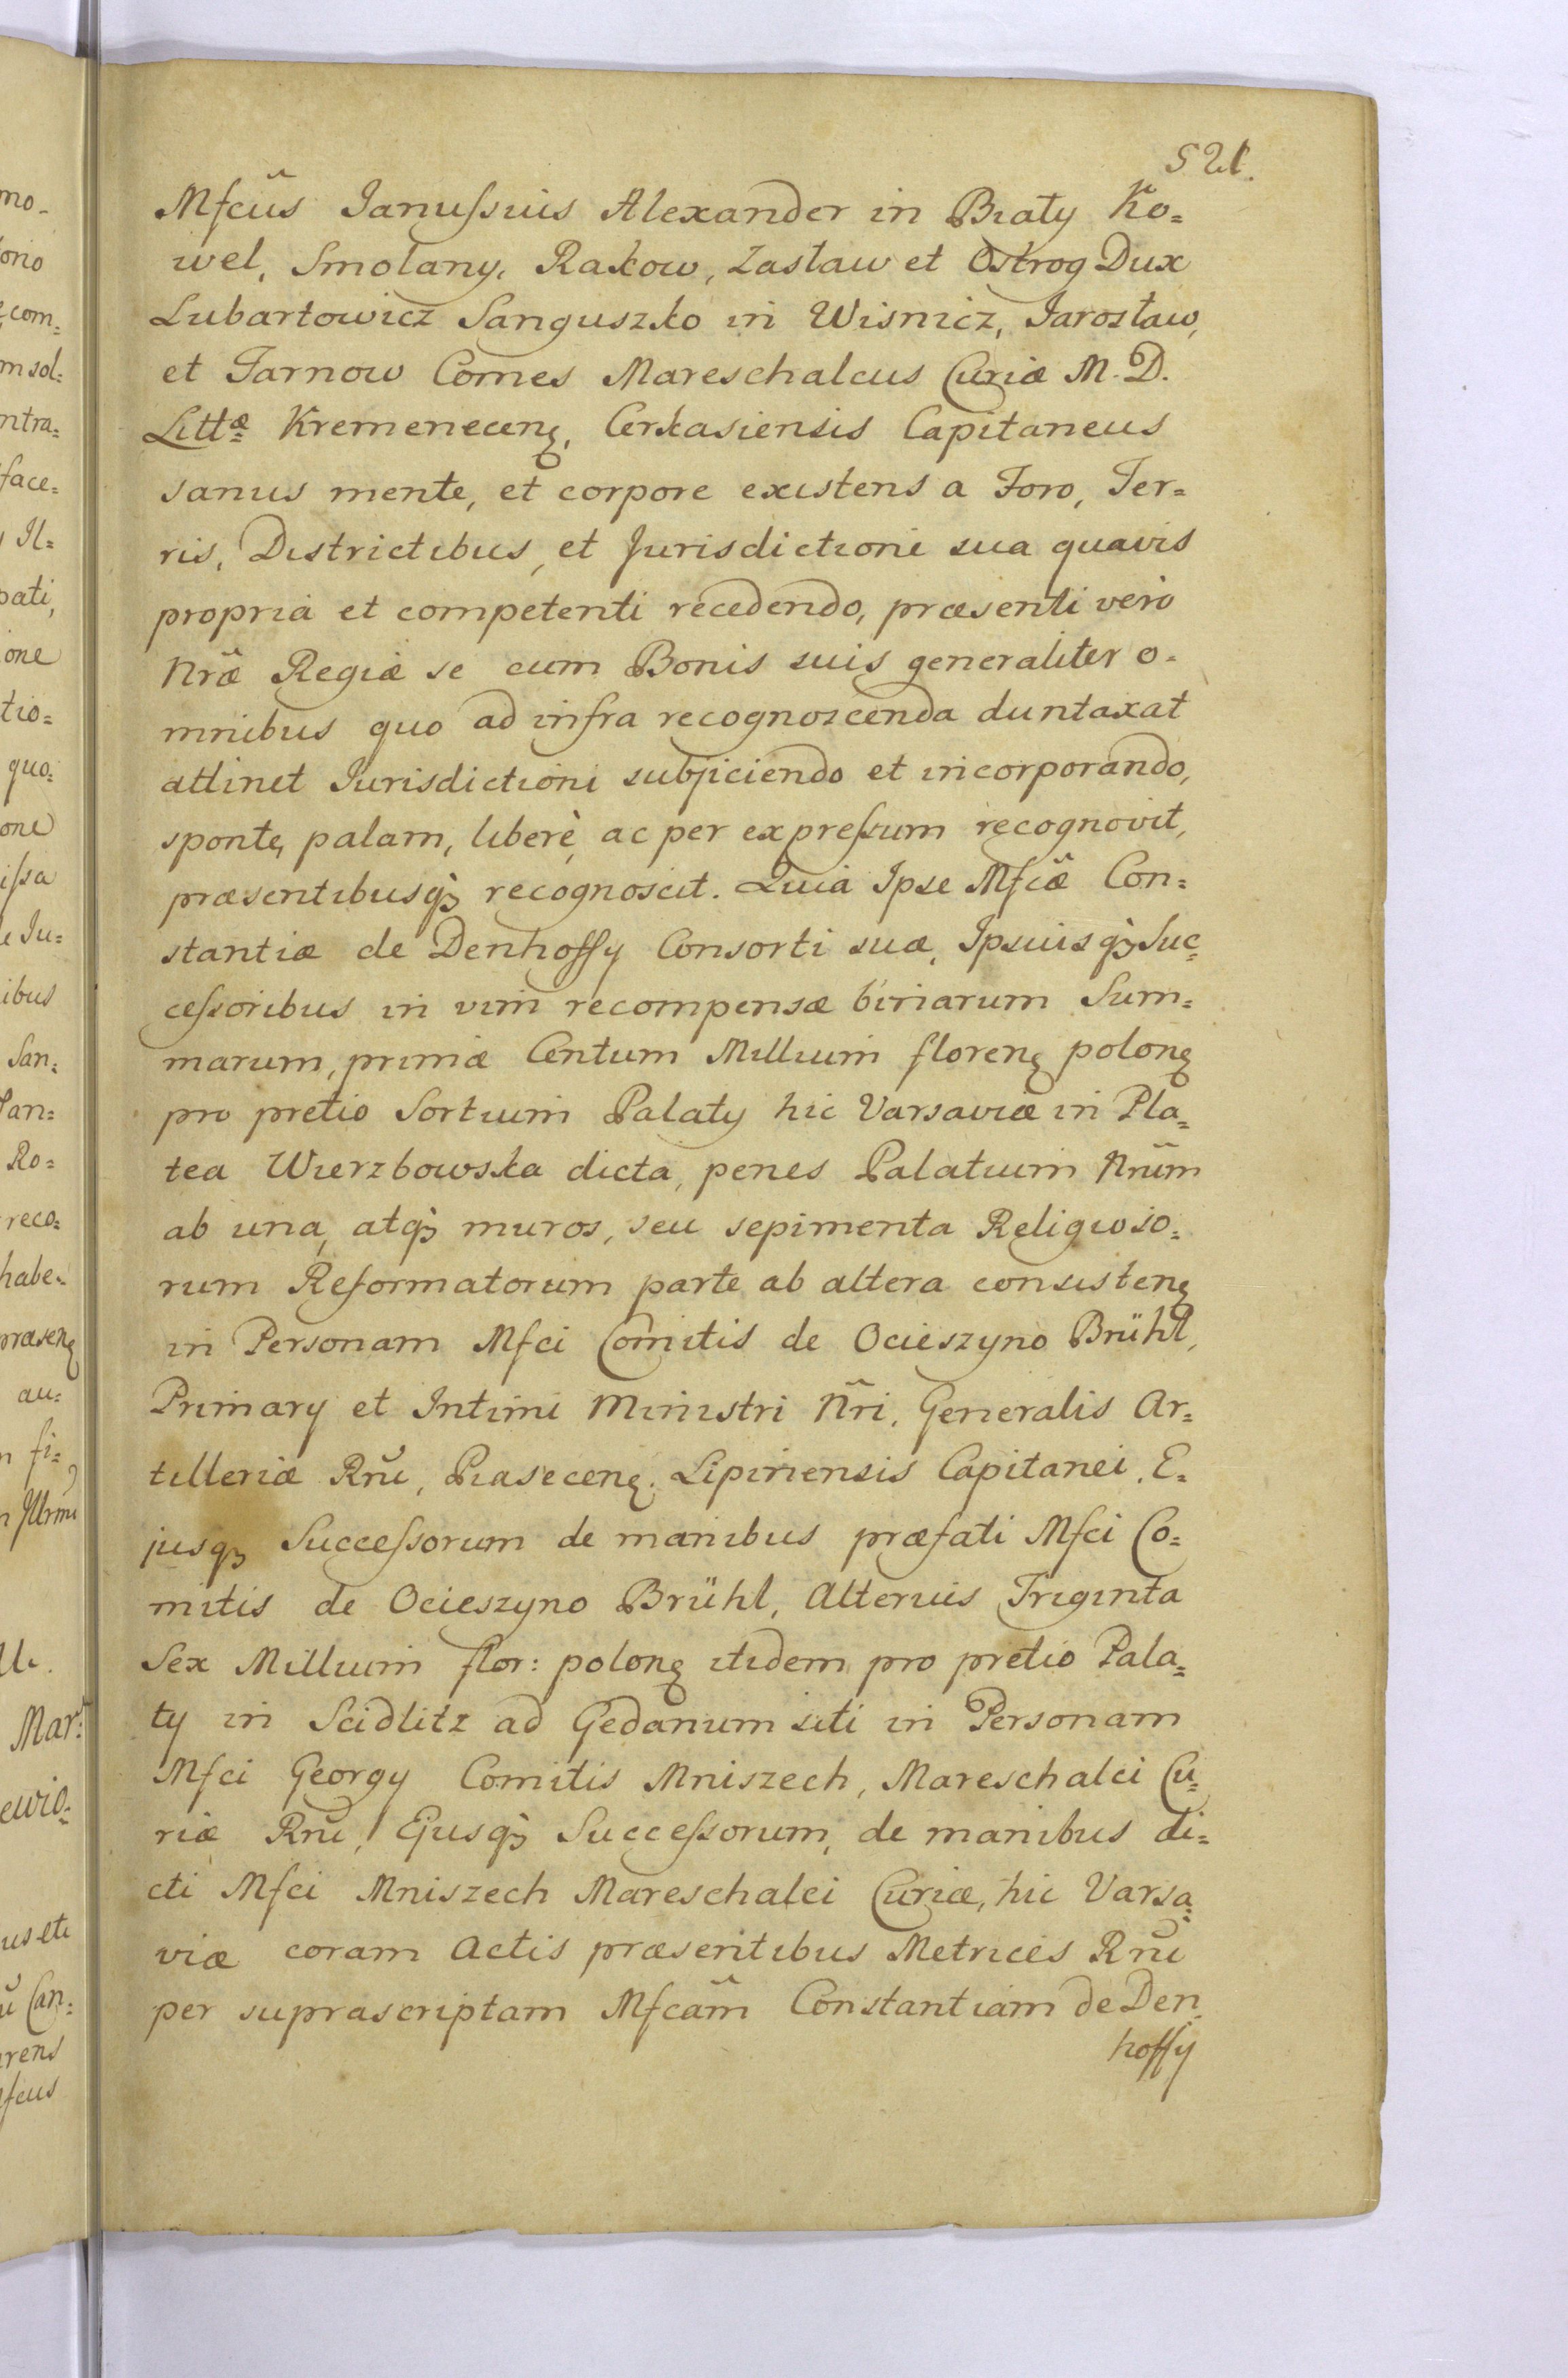 521.
Mfcûs Janussius Alexander in Biały Ko=
wel, Smolany, Rakow, Zasław et Ostrog Dux
Lubartowicz Sanguszko in Wisnicz, Jarosław,
et Tarnow Comes Mareschalcus Curiæ M. D.
Littæ Kremenecenȩ, Cerkasiensis Capitaneus
sanus mente, et corpore existens a Foro, Ter=
ris, Districtibus, et Jurisdictione sua quavis
propria et competenti recedendo, præsenti verò
Nræ Regiæ se cum Bonis suis generaliter o=
mnibus quo ad infra recognoscenda duntaxat
attinet Jurisdictioni subjiciendo et incorporando,
sponte, palam, liberè, ac per expressum recognovit,
præsentibusqꝫ recognoscit. Quia Ipse Mfcæ Con=
stantiæ de Denhoffy Consorti suæ, Ipsiusqꝫ Suc=
cessoribus in vim recompensæ binarum Sum=
marum, primæ Centum Millium florenȩ polonȩ
pro pretio Sortium Palaty hic Varsaviæ in Pla=
tea Wierzbowska dicta, penes Palatium Nrũm
ab una, atqꝫ muros, seu sepimenta Religioso=
rum Reformatorum parte ab altera consistenȩ
in Personam Mfci Comitis de Ocieszyno Brühl,
Primary et Intimi Ministri Nr̃i, Generalis Ar=
tilleriæ Rnũ, Piasecenȩ. Lipinensis Capitanei, E=
jusqꝫ Successorum de manibus præfati Mfci Co=
mitis de Ocieszyno Brühl, Alterius Triginta
Sex Millium flor: polonȩ itidem pro pretio Pala=
ty in Scidlitz ad Gedanum siti in Personam
Mfci Georgy Comitis Mniszech, Mareschalci Cu=
riæ Rnũ, Ejusqꝫ Successorum, de manibus di=
cti Mfci Mniszech Mareschalci Curiæ, hic Varsa=
viæ coram Actis præsentibus Metrices Rnũ
per suprascriptam Mfcam̃ Constantiam de Den=
hoffy